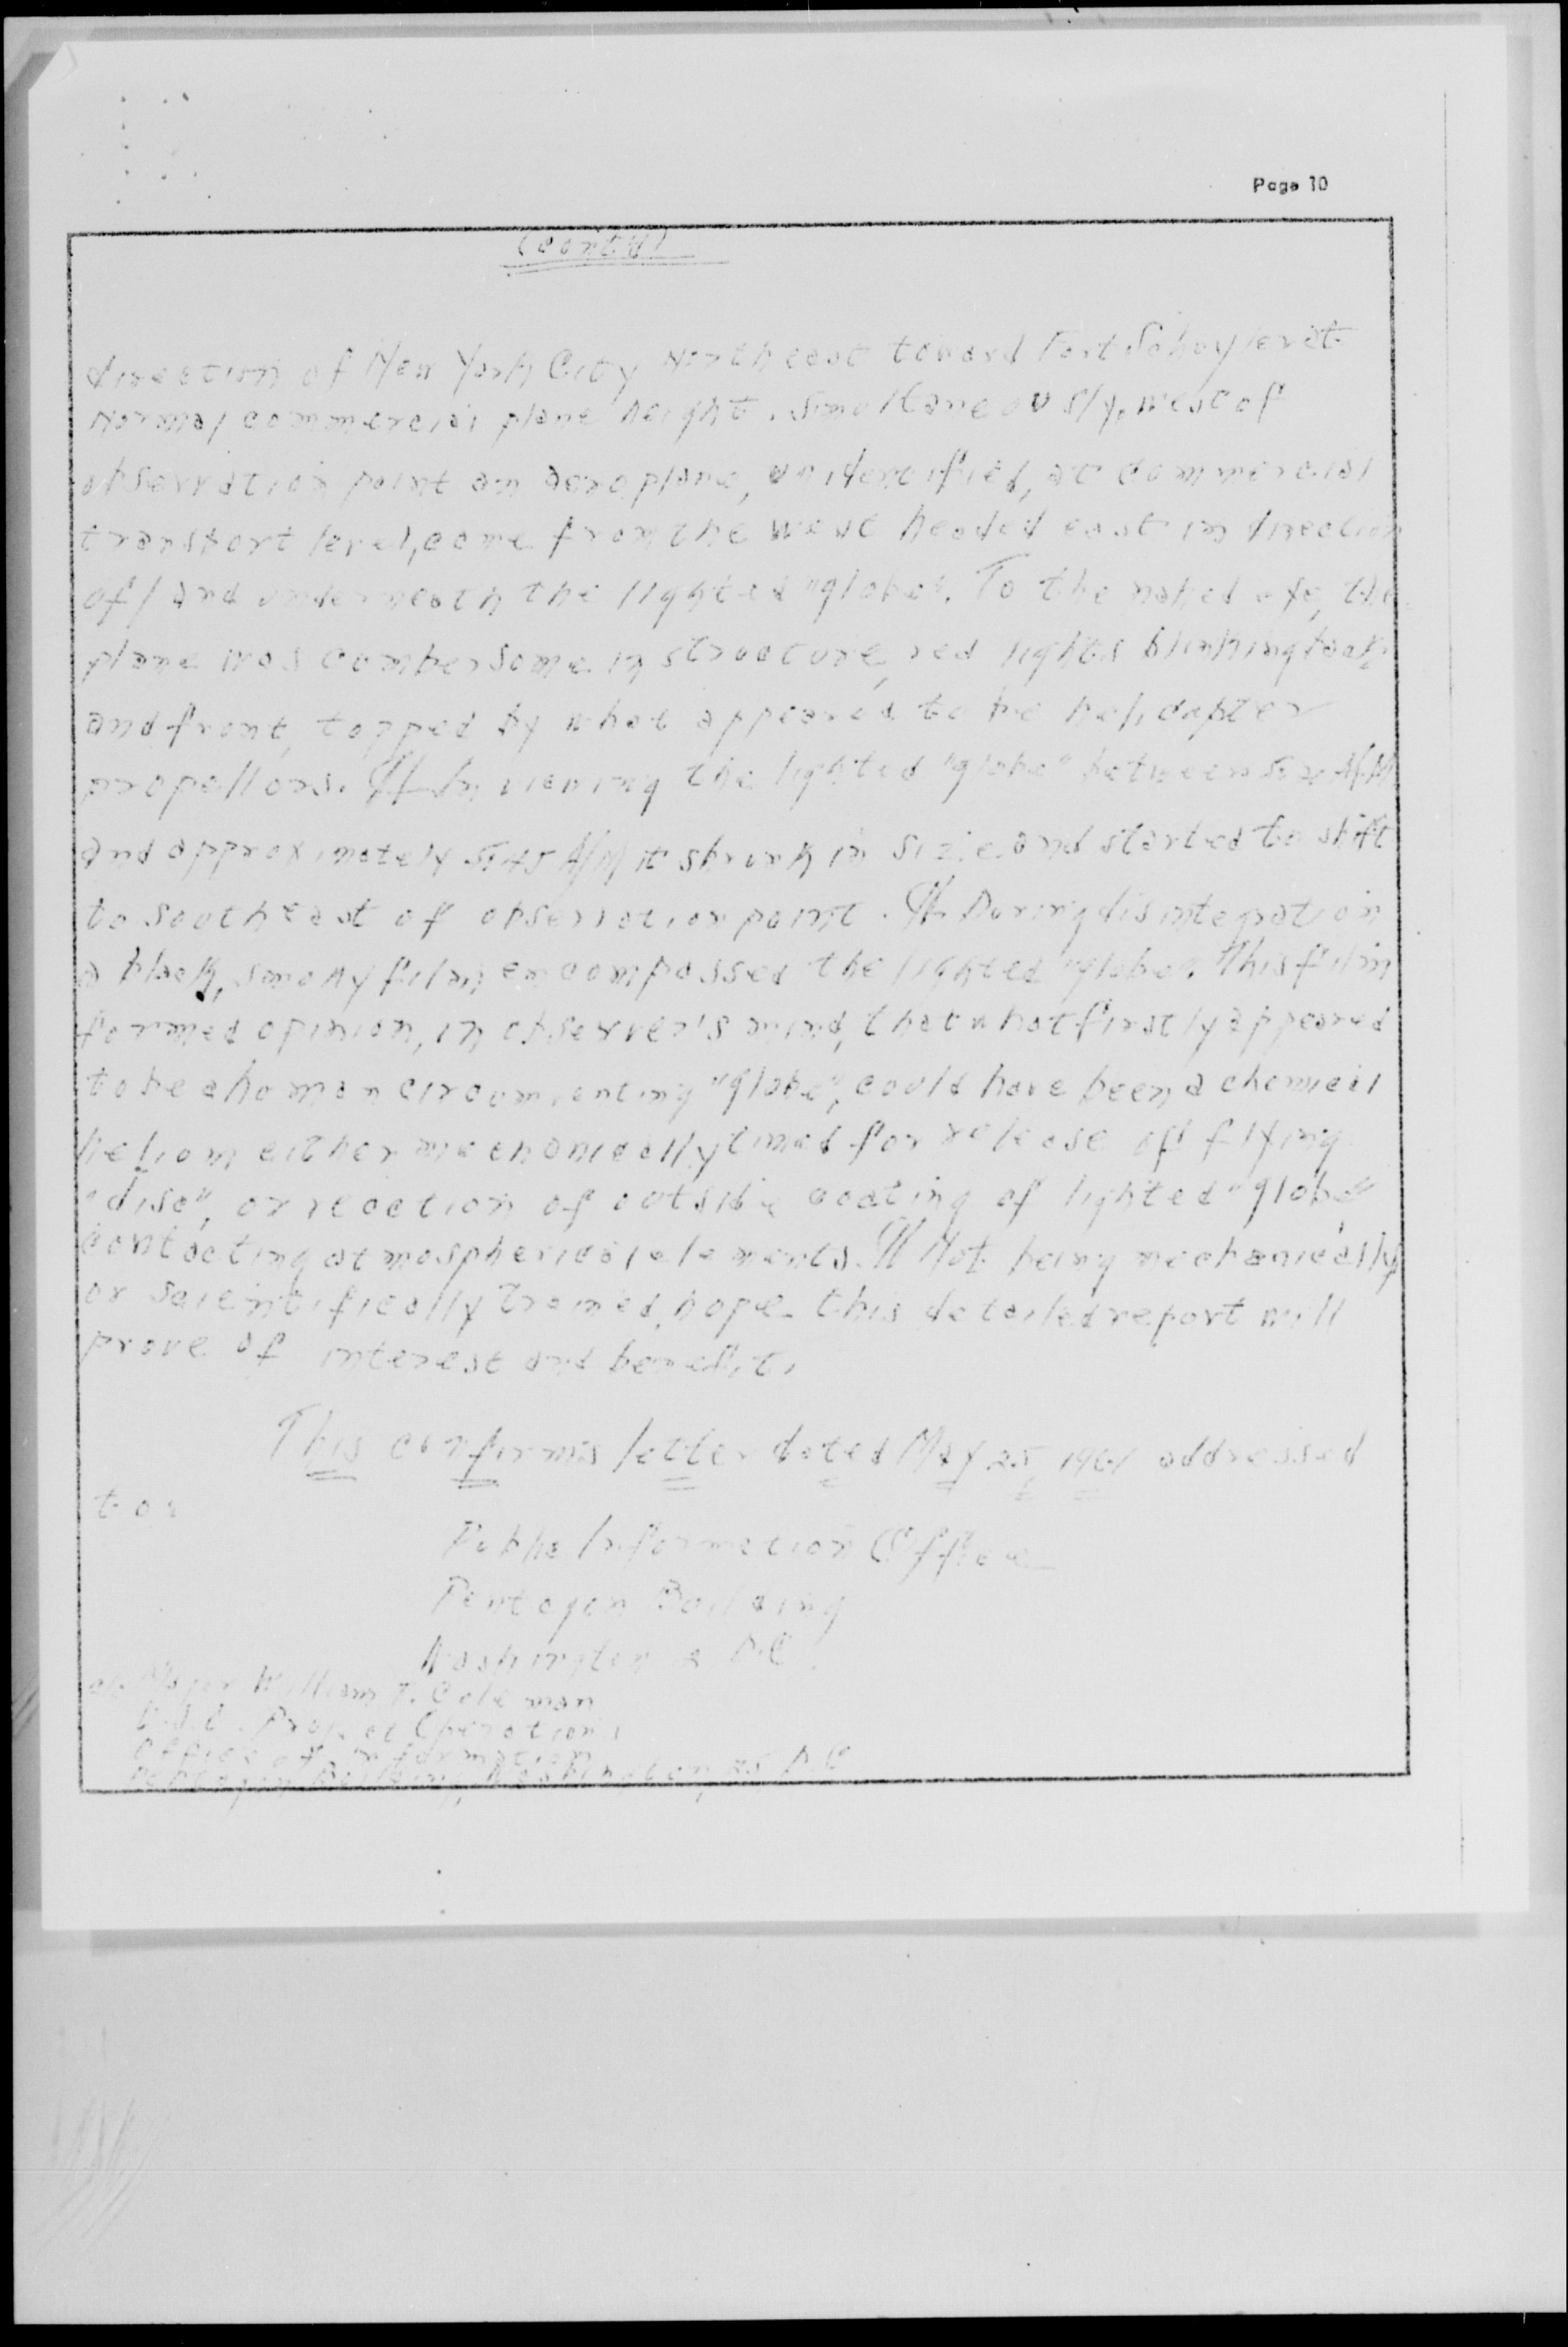 Page 10
(cont'd)
direction of New York City Northeast toward Fort Schuyler at
normal commercial plane height. Simultaneously, west of
observation point an aeroplane, unidentified, at commercial
transport level, came from the west headed east in direction
of/and underneath the lighted "globe". To the naked eye, the
plane was cumbersome in structure, red lights blinking back
and front, topped by what appeared to be helicopter
propellors. ¶ In viewing the lighted "globe" between A/M
and approximately 5:45 A/M it shrunk in size and started to shift
to southeast of observation point. ¶ During disintegration
a black, smoky film encompassed the lighted "globe". This film
formed opinion, in observer's mind, that what firstly appeared
to be a human circumventing "globe", could have been a chemical
helium either mechanically timed for release of flying
"disc", or reaction of outside coating of lighted "globe"
contacting atmospherical elements. ¶ Not being mechanically
or scientifically trained, hope this detailed report will
prove of interest and benefit.
This confirms letter dated May 25, 1961 addressed
to:
Public Information Office
Pentagon Building
Washington D.C.
Major William T. Coleman
Project Operations
Office of Information
Pentagon Building, Washington, 25 D.C.